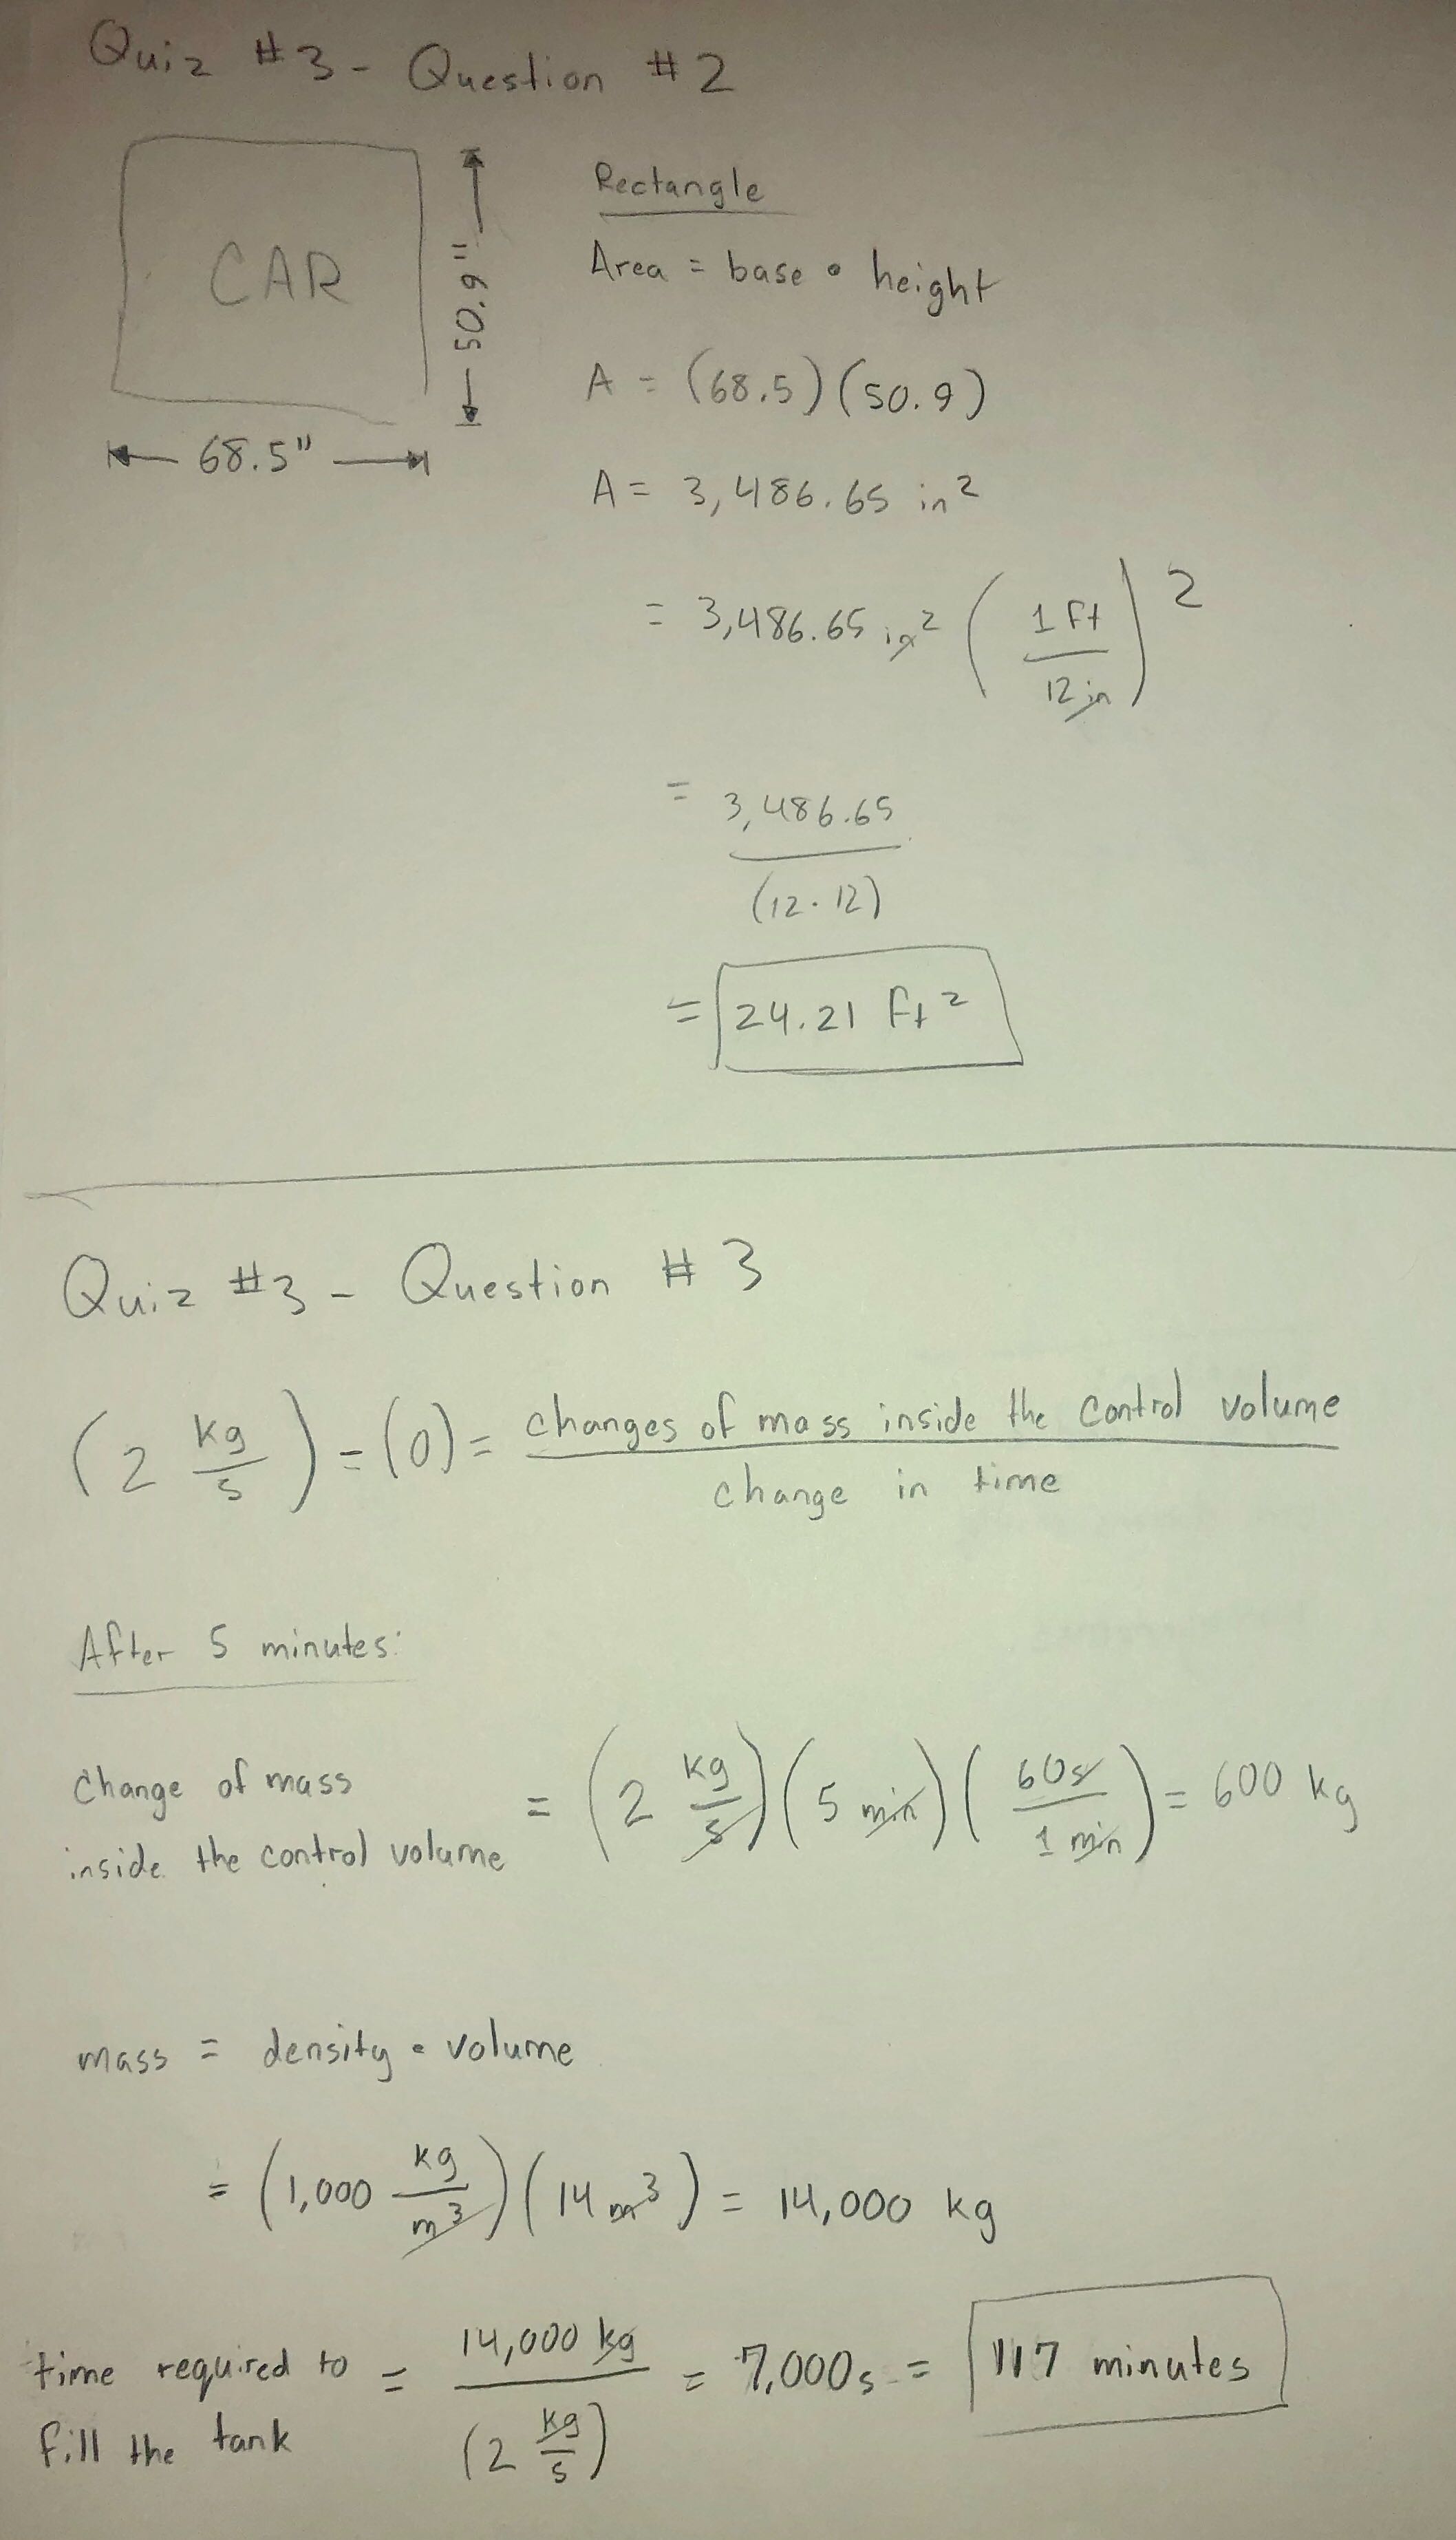 Quiz #3 - Question #2
CAR
50.9"
68.5"
Rectangle
Area = base • height
A = (68.5)(50.9)
A = 3,486.65 in²
= 3,486.65 in² (1 ft / 12 in)²
= 3,486.65 / (12·12)
= 24.21 ft²
Quiz #3 - Question #3
(2 kg/s) = (0) = changes of mass inside the control volume / change in time
After 5 minutes:
change of mass inside the control volume = (2 kg/s)(5 min)(60s / 1 min) = 600 kg
mass = density • volume
= (1,000 kg/m³)(14 m³) = 14,000 kg
time required to fill the tank = 14,000 kg / (2 kg/s) = 7,000s = 117 minutes